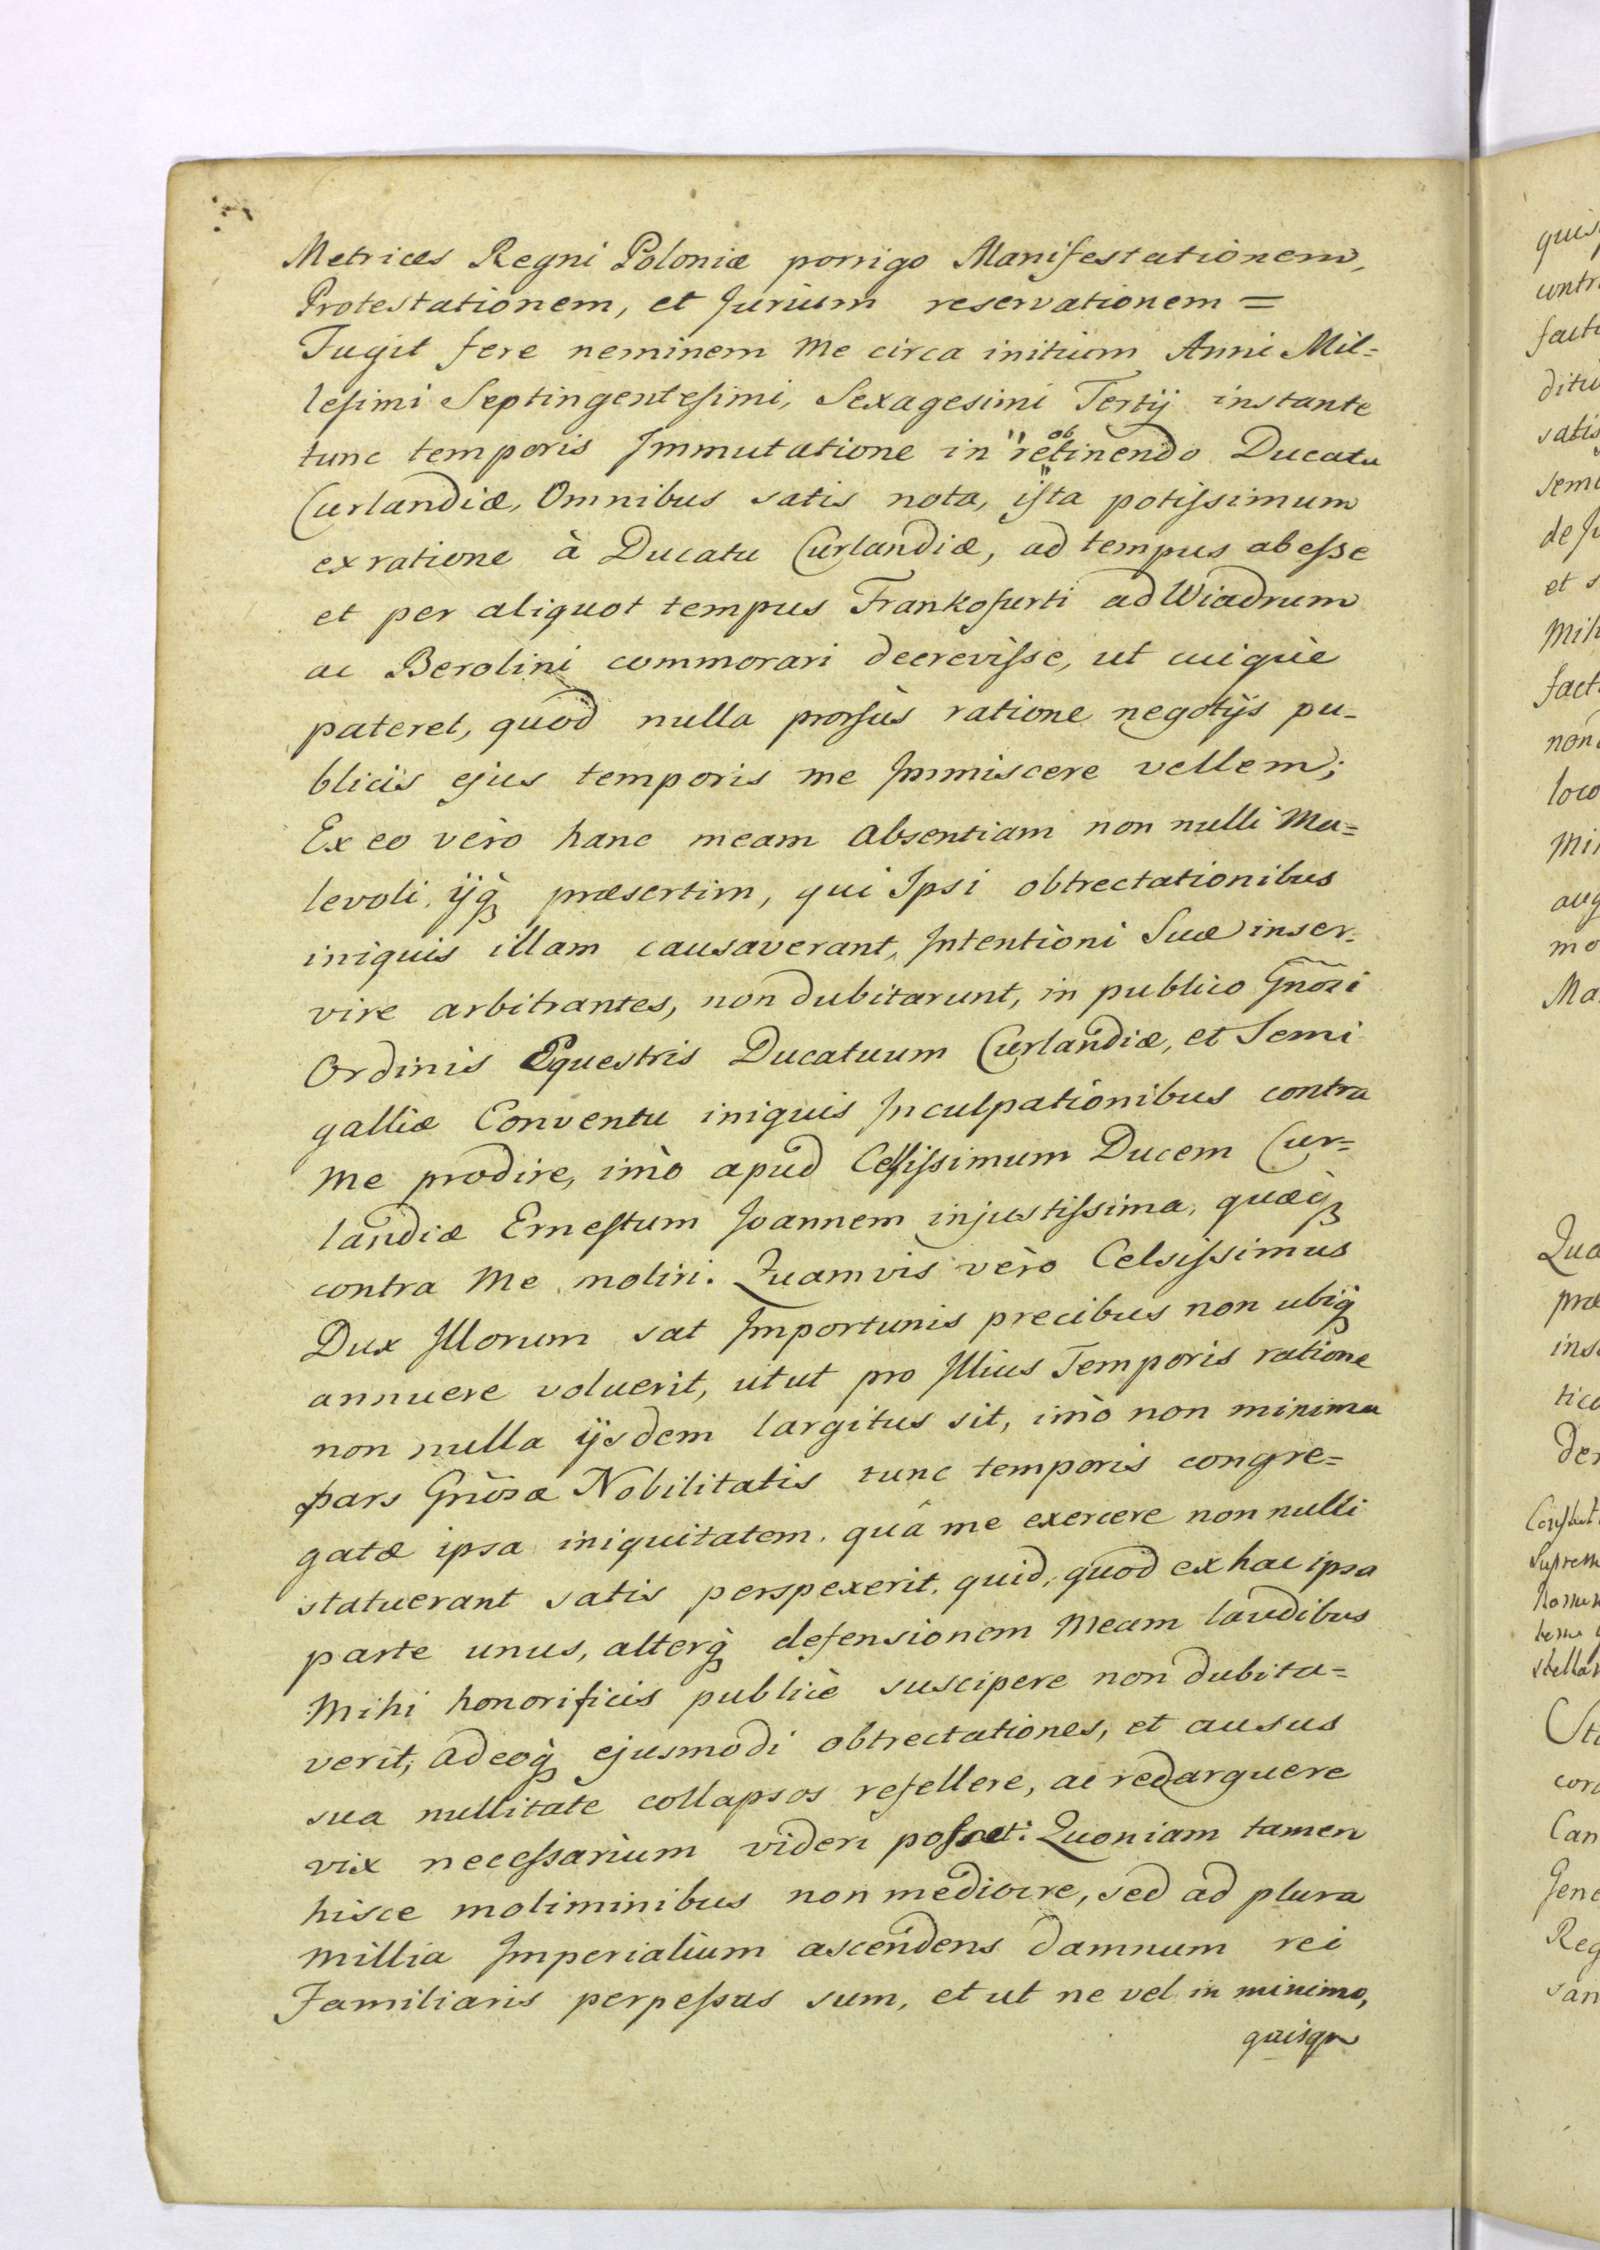 Metrices Regni Poloniæ porrigo Manifestationem,
Protestationem, et Jurium reservationem =
Fugit fere neminem me circa initium Anni Mil=
leſimi Septingenteſimi, Sexagesimi Tertij instante
tunc temporis Immutatione in "retinendo Ducatu
ob
Curlandiæ, Omnibus satis nota, iſta potiſsimum
ex ratione à Ducatu Curlandiæ, ad tempus abeſse
et per aliquot tempus Frankofurti ad Wiadrum
ac Berolini commorari decreviſse, ut cuiquè
pateret, quod nulla prorſus ratione negotijs pu-
blicis ejus temporis me Immiscere vellem;
Ex eo vèro hanc meam absentiam non nulli Ma=
levoli, ijq̀ præsertim, qui Ipsi obtrectationibus
iniquis illam causaverant, Intentioni Suæ inser-
vire arbitrantes, non dubitarunt, in publico Gñosi
Ordinis Equestris Ducatuum Curlandiæ, et Semi
galliæ Conventu iniquis Inculpationibus contra
me prodire, imò apud Celſiſsimum Ducem Cur=
landiæ Erneſtum Joannem injustiſsima, quæq̀
contra Me moliri. Quamvis vèro Celsiſsimus
Dux Illorum sat Importunis precibus non ubiq̀
annuere voluerit, utut pro Illius Temporis ratione
non nulla ijsdem largitus sit, imò non minima
pars Gñosæ Nobilitatis tunc temporis congre=
gatæ ipsa iniquitatem, quâ me exercere non nulli
statuerant satis perspexerit, quid, quod ex hac ipsa
parte unus, alterq̀ defensionem Meam laudibus
Mihi honorificis publicè suscipere non dubita=
verit, adeoq̀ ejusmodi obtrectationes, et ausus
sua nullitate collapsos refellere, ac redarguere
vix neceſsarium videri poſset. Quoniam tamen
hisce moliminibus non mediocre, sed ad plura
Millia Imperialium ascendens damnum rei
Familiaris perpeſsus sum, et ut ne vel in minimo,
quisq